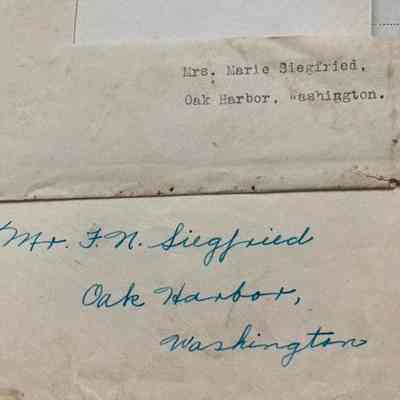 Mrs. Marie Siegfried,
Oak Harbor, Washington.
Mr. F. N. Siegfried
Oak Harbor,
Washington